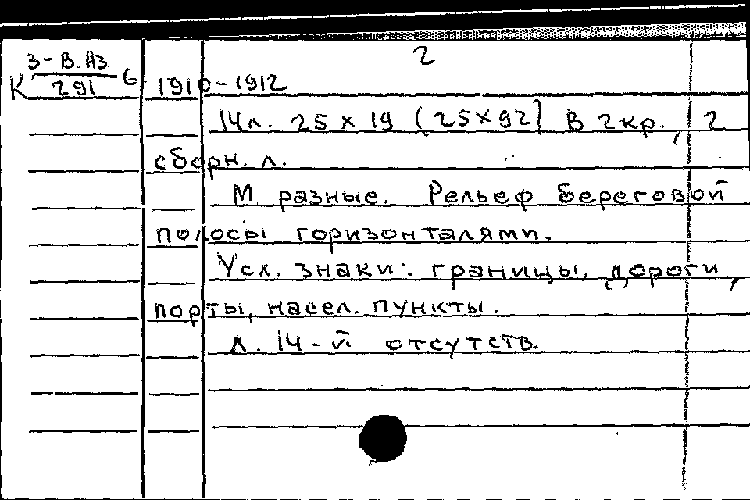 2
З-В.Из
К 291 6 1910-1912
14л. 25 х 19 (25х92) В 2кр., 2
сборн. л.
М разные. Рельеф береговой
полосы горизонталями.
Усл. знаки: границы, дороги,
порты, насел. пункты.
Л. 14-й отсутств.